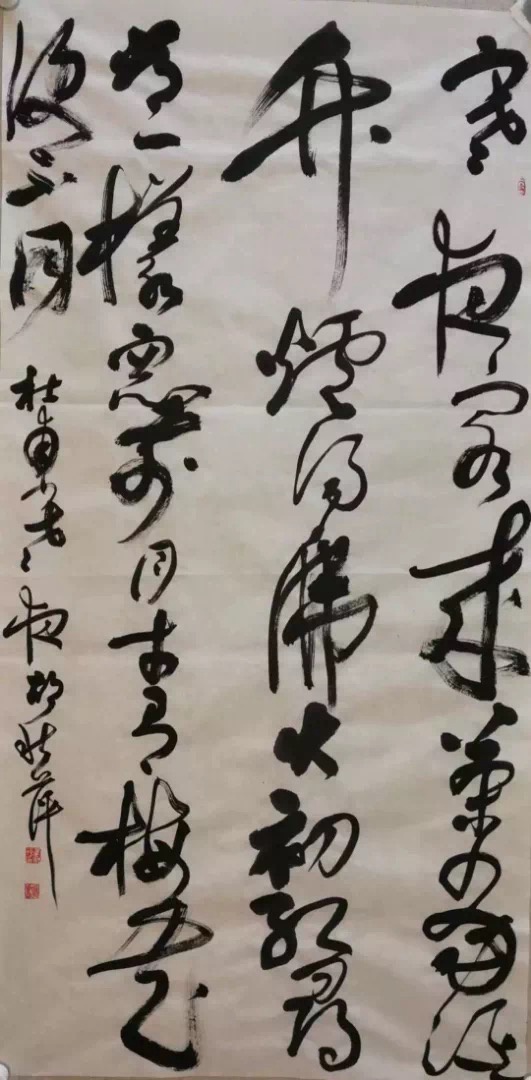 寒夜客來茶當酒
竹爐湯沸火初紅尋
常一樣窗前月才有梅花
便不同 杜 寒夜 胡秋萍